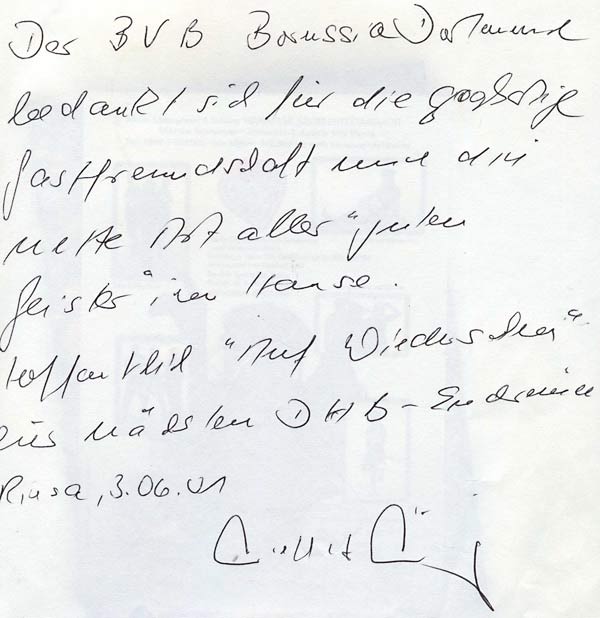 Der BVB Borussia Dortmund
bedankt sich für die großartige
Gastfreundschaft und die
nette Art aller "guten
Geister" im Hause.
Hoffentlich "Auf Wiedersehen"
zur nächsten DHB-Endrunde
Riesa, 3.06.01